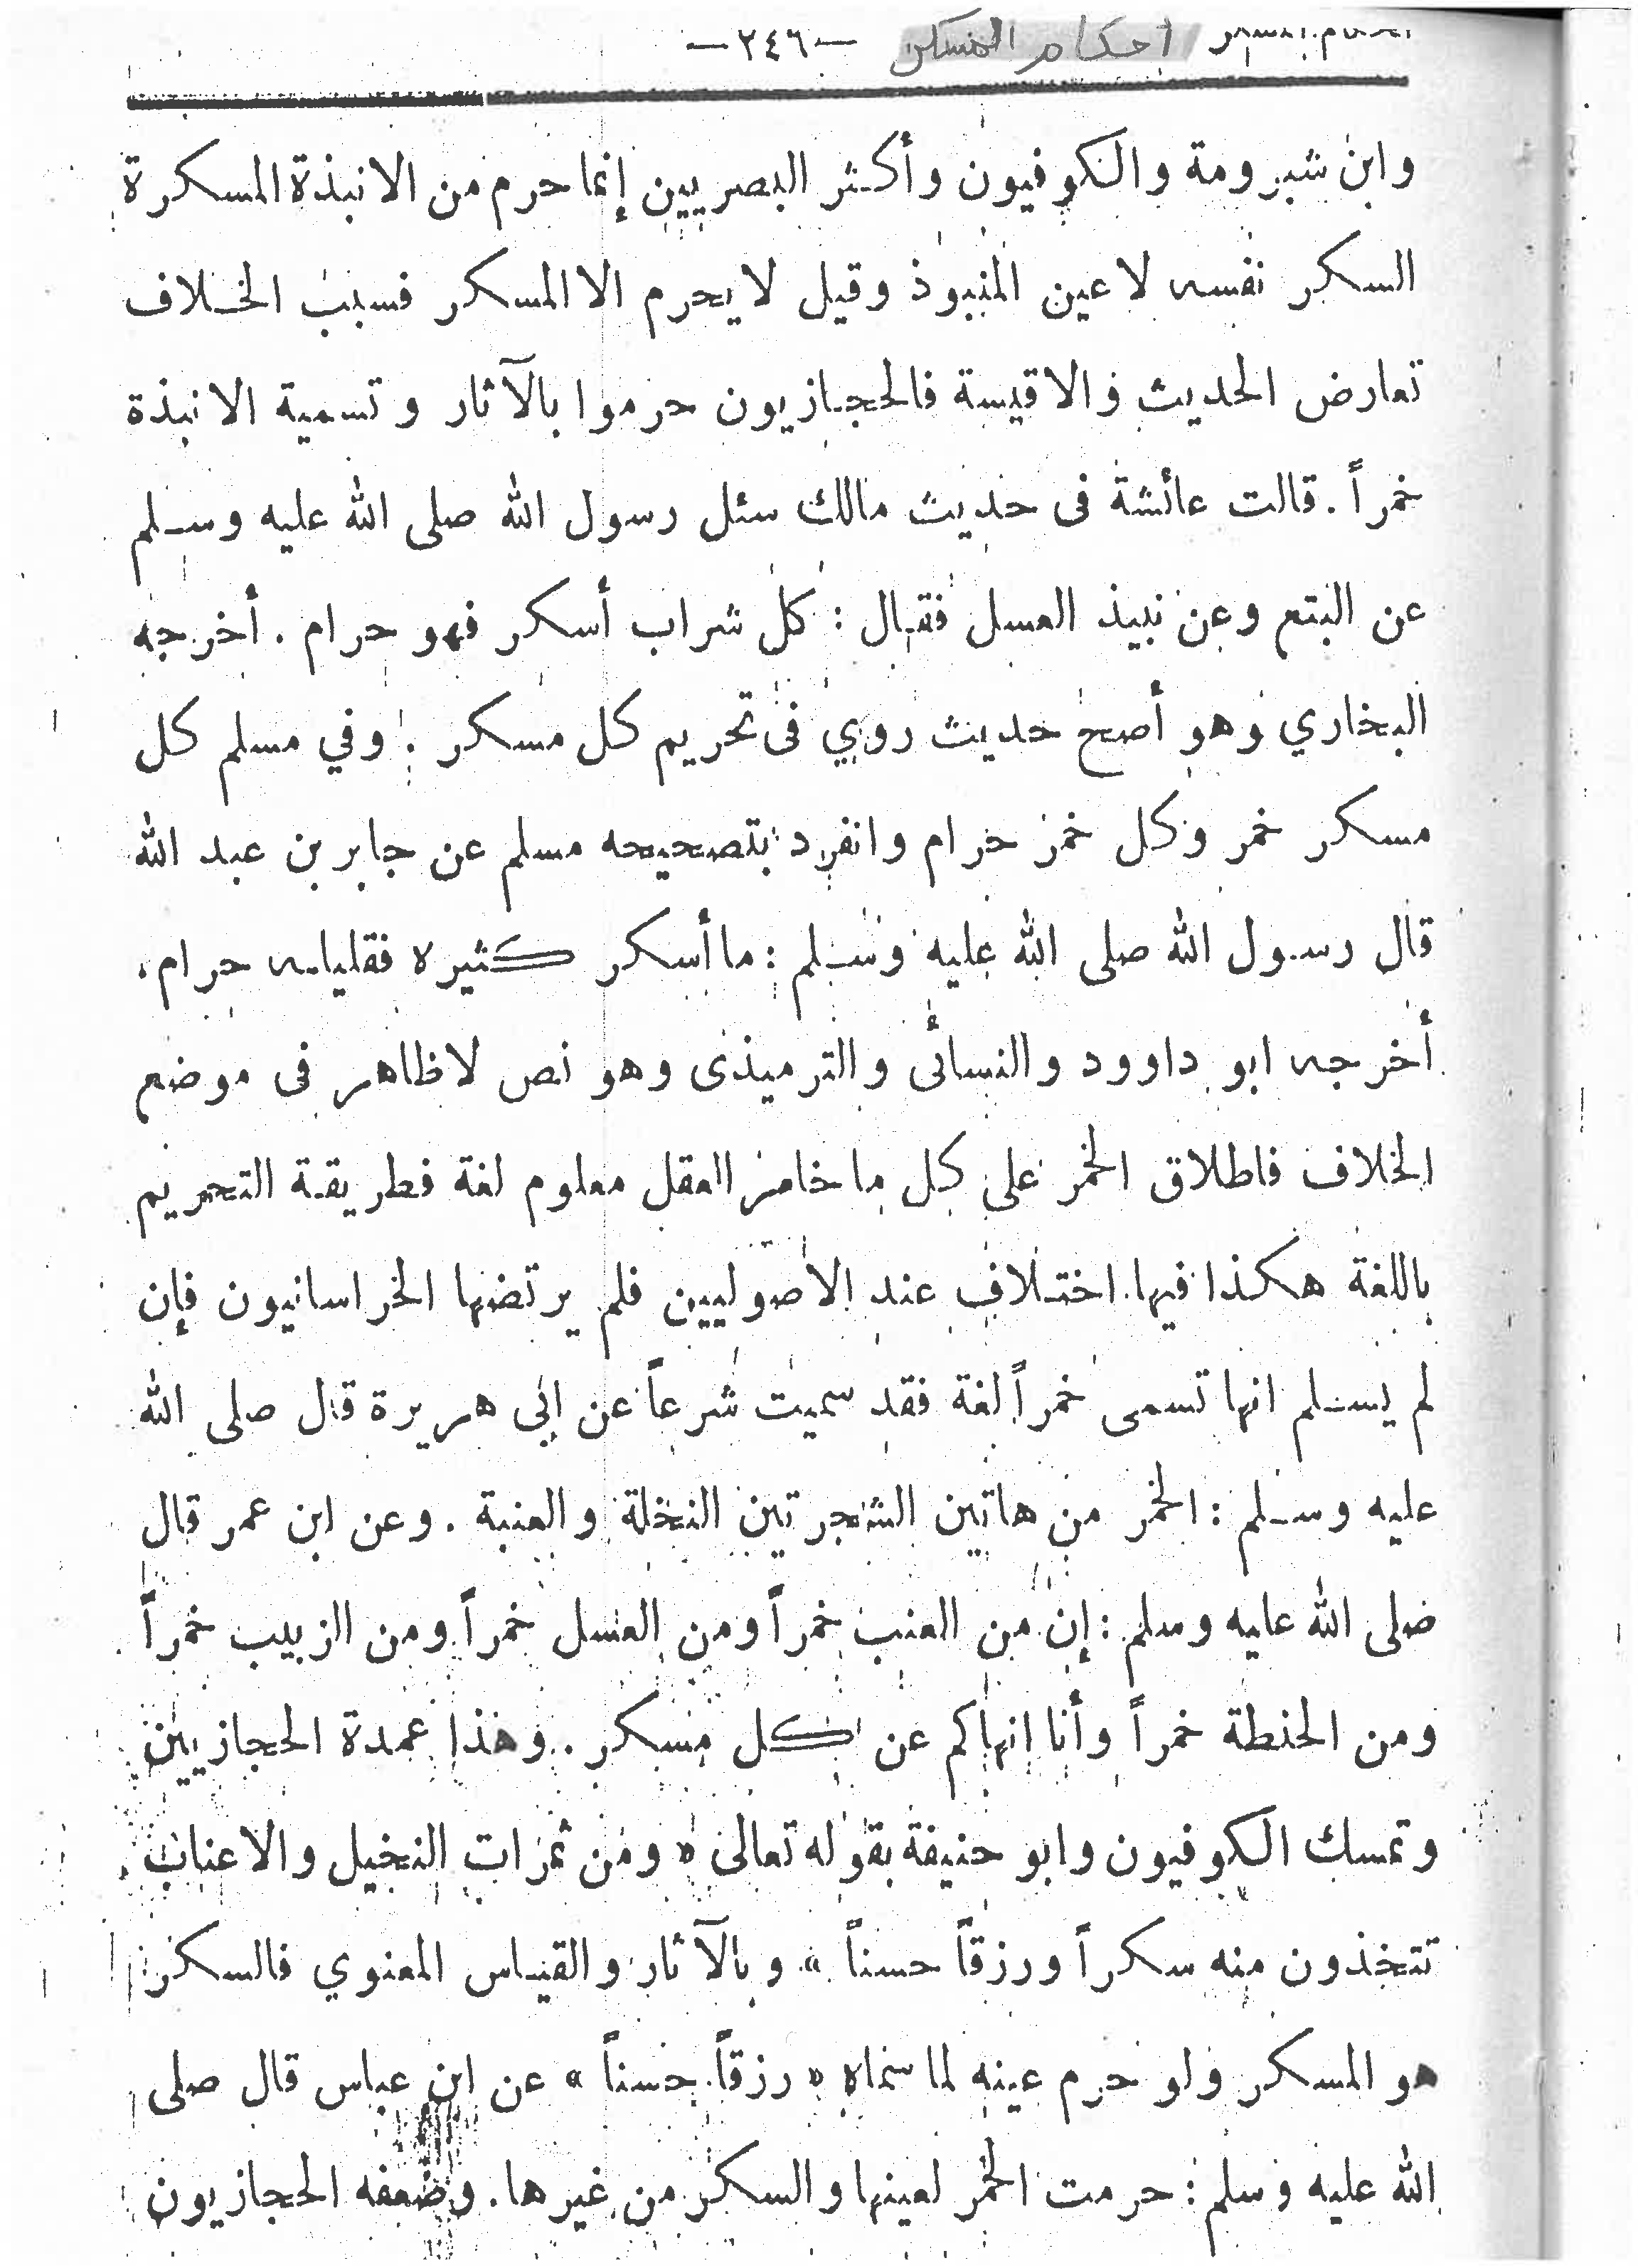 احكام المسكر —٢٤٦—
وابن شبرومة والكوفيون وأكثر البصريين إنما حرم من الانبذة المسكرة
السكر نفسه لا عين المنبوذ وقيل لا يحرم الا المسكر فسبب الخلاف
تعارض الحديث والاقيسة فالحجازيون حرموا بالآثار وتسمية الانبذة
خمراً . قالت عائشة فى حديث مالك سئل رسول الله صلى الله عليه وسلم
عن البتع وعن نبيذ العسل فقال : كل شراب أسكر فهو حرام . أخرجه
البخاري وهو أصح حديث روي فى تحريم كل مسكر . وفي مسلم كل
مسكر خمر وكل خمر حرام وانفرد بتصحيحه مسلم عن جابر بن عبد الله
قال رسول الله صلى الله عليه وسلم : ما أسكر كثيره فقليله حرام .
أخرجه ابو داوود والنسائى والترميذى وهو نص لا ظاهر فى موضع
الخلاف فاطلاق الخمر على كل ما خامر العقل معلوم لغة فطريقة التحريم
باللغة هكذا فيها اختلاف عند الاصوليين فلم يرتضها الخراسانيون فإن
لم يسلم انها تسمى خمراً لغة فقد سميت شرعاً عن ابى هريرة قال صلى الله
عليه وسلم : الخمر من هاتين الشجرتين النخلة والعنبة . وعن ابن عمر قال
صلى الله عليه وسلم : إن من العنب خمراً ومن العسل خمراً ومن الزبيب خمراً
ومن الحنطة خمراً وأنا انهاكم عن كل مسكر . وهذا عمدة الحجازيين
وتمسك الكوفيون وابو حنيفة بقوله تعالى « ومن ثمرات النخيل والاعناب
تتخذون منه سكراً ورزقاً حسناً » وبالآثار والقياس المعنوي فالسكر
هو المسكر ولو حرم عينه لما سماه « رزقاً حسناً » عن ابن عباس قال صلى
الله عليه وسلم : حرمت الخمر لعينها والسكر من غيرها . وضعفه الحجازيون